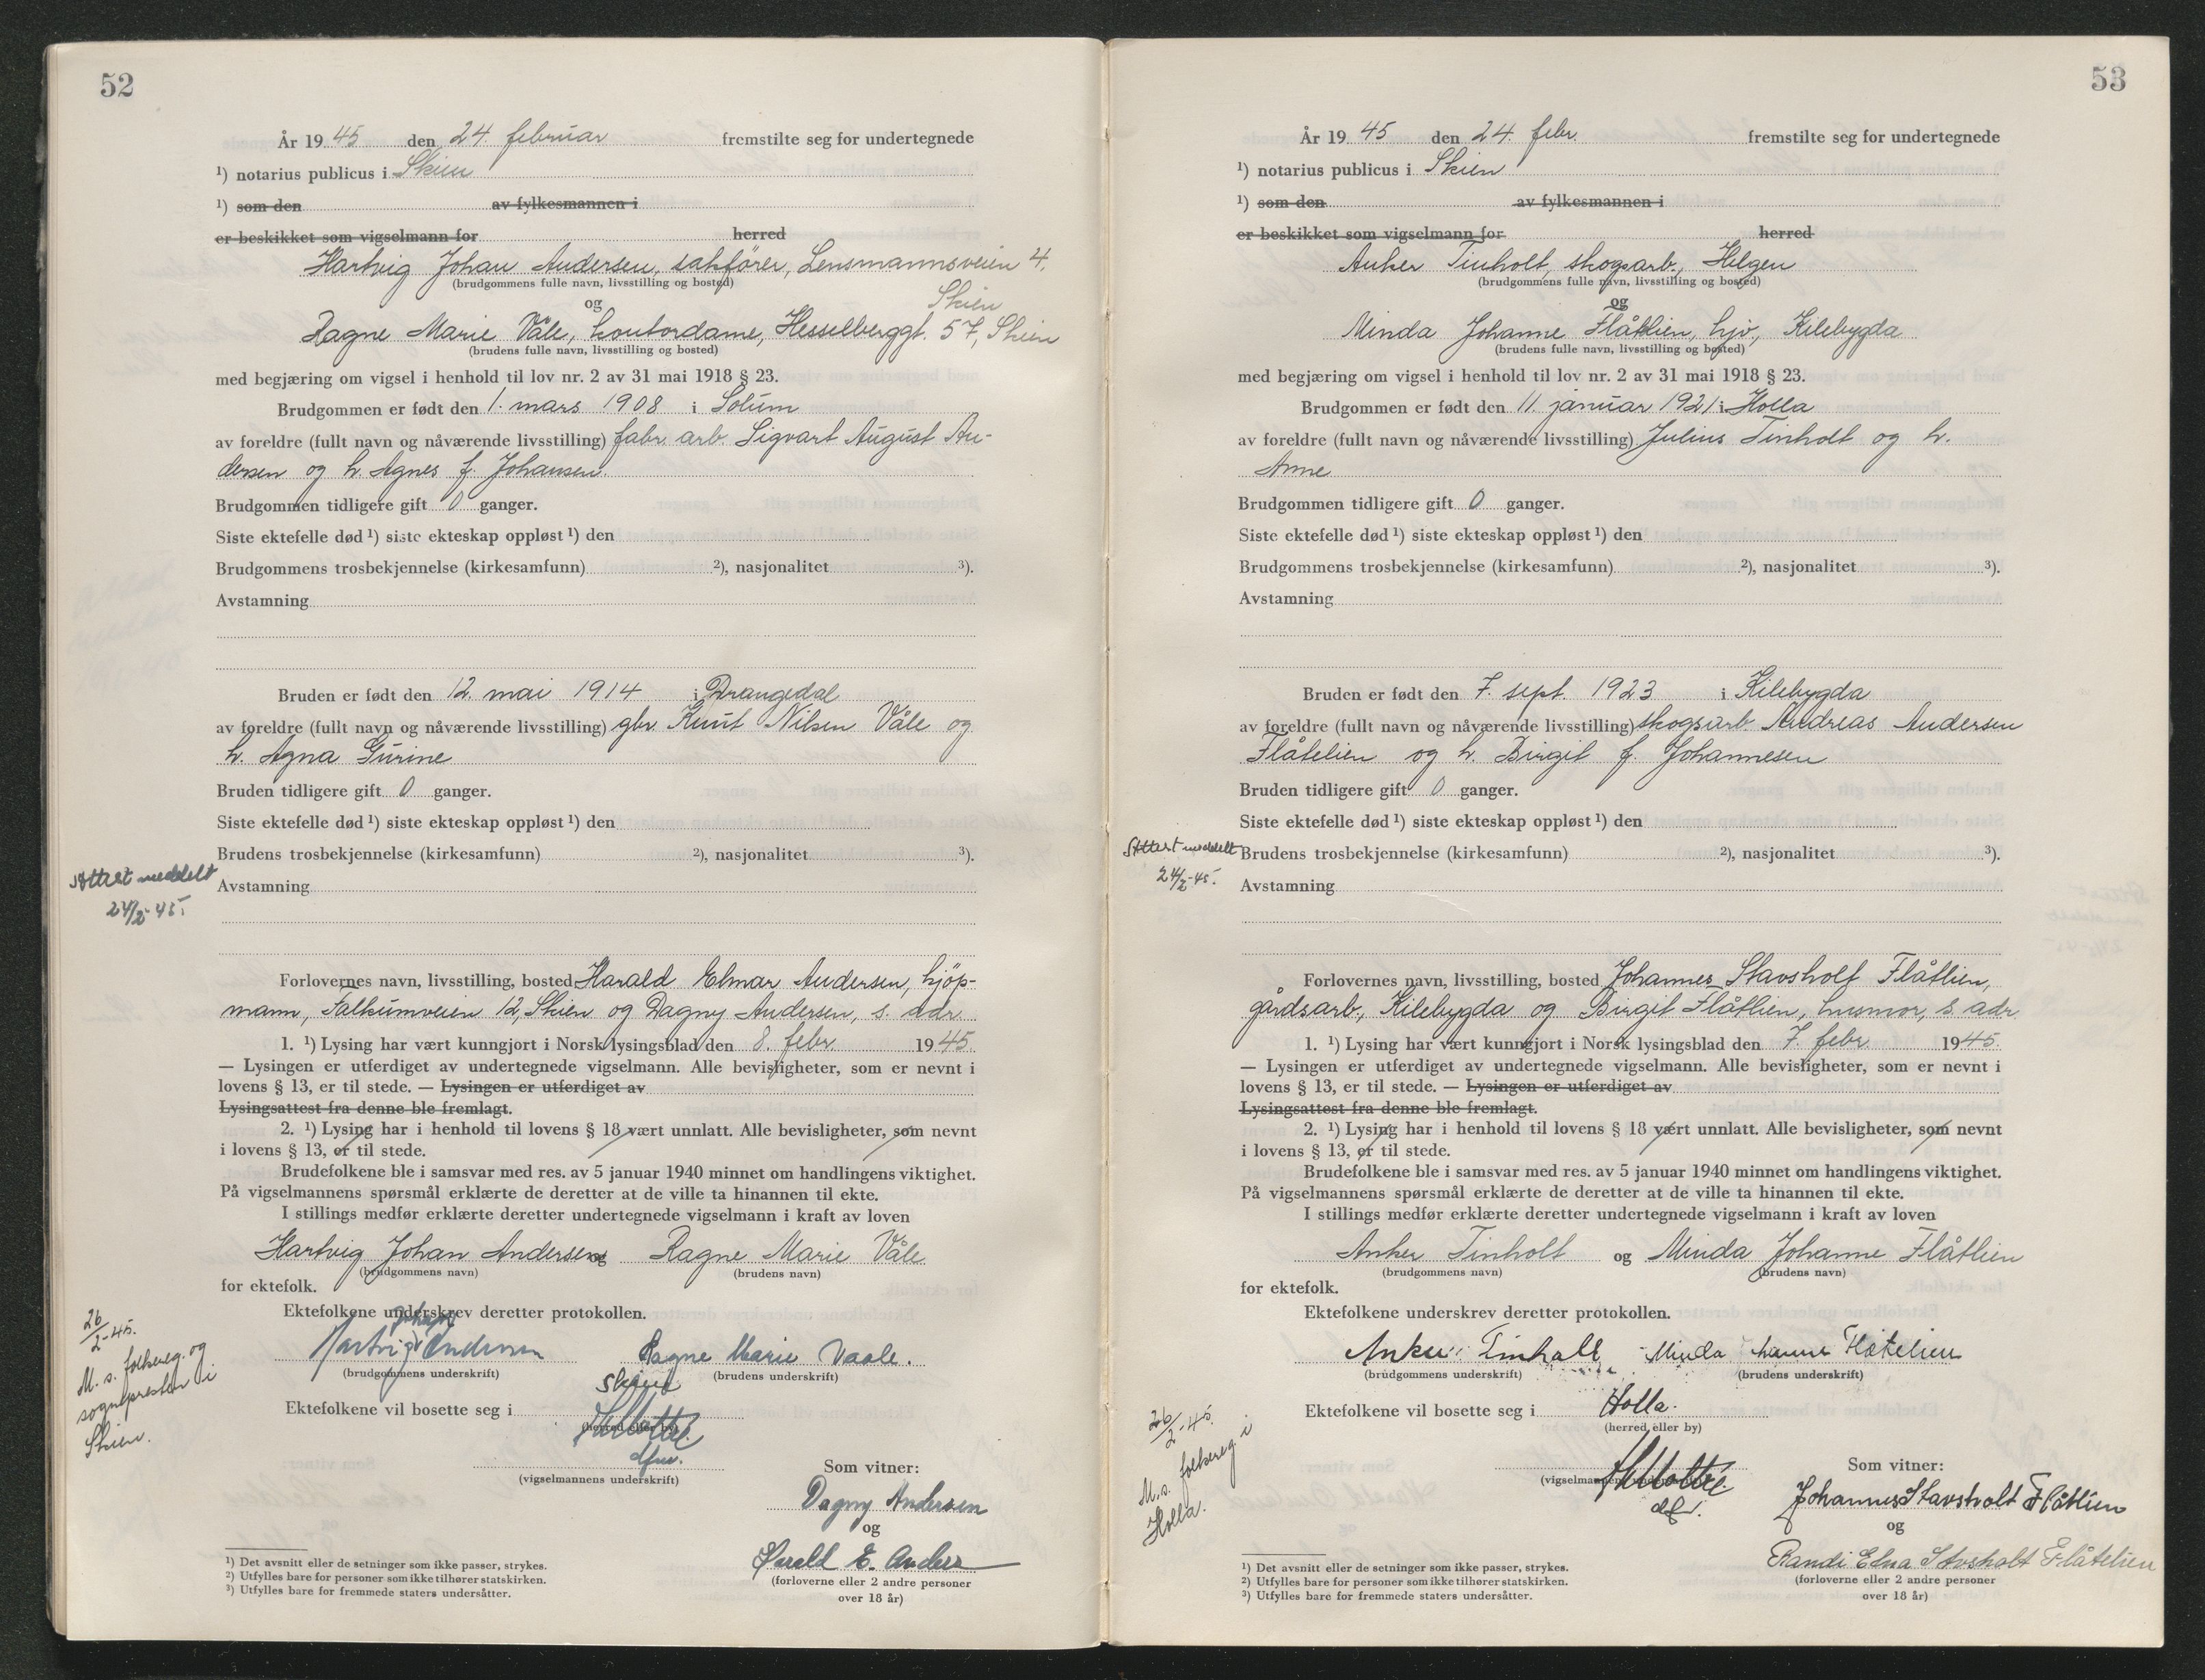 52
År 19 45 den 24. februar fremstilte seg for undertegnede
¹) notarius publicus i Skien
¹) som den av fylkesmannen i
er beskikket som vigselmann for herred
Hartvig Johan Andersen, sakfører, Lensmannsveien 4,
(brudgommens fulle navn, livsstilling og bosted)
Skien
og
Ragne Marie Våle, kontordame, Hesselberggt. 57, Skien
(brudens fulle navn, livsstilling og bosted)
med begjæring om vigsel i henhold til lov nr. 2 av 31 mai 1918 § 23.
Brudgommen er født den 1. mars 1908 i Solum
av foreldre (fullt navn og nåværende livsstilling) fabr. arb. Sigvart August An-
dersen og h. Agnes f. Johansen.
Brudgommen tidligere gift 0 ganger.
Siste ektefelle død ¹) siste ekteskap oppløst ¹) den
Brudgommens trosbekjennelse (kirkesamfunn) ²), nasjonalitet ³).
Avstamning
Bruden er født den 12. mai 1914 i Drangedal
av foreldre (fullt navn og nåværende livsstilling) gbr. Knut Nilsen Våle og
h. Agna Gurine
Bruden tidligere gift 0 ganger.
Siste ektefelle død ¹) siste ekteskap oppløst ¹) den
Brudens trosbekjennelse (kirkesamfunn) ²), nasjonalitet ³).
Attest meddelt
24/2-45.
Avstamning
Forlovernes navn, livsstilling, bosted Harald Elmar Andersen, kjöp-
mann, Falkumveien 12, Skien og Dagny Andersen, s. adr.
1. ¹) Lysing har vært kunngjort i Norsk lysingsblad den 8. febr. 1945.
— Lysingen er utferdiget av undertegnede vigselmann. Alle bevisligheter, som er nevnt i
lovens § 13, er til stede. — Lysingen er utferdiget av
Lysingsattest fra denne ble fremlagt.
2. ¹) Lysing har i henhold til lovens § 18 vært unnlatt. Alle bevisligheter, som nevnt
i lovens § 13, er til stede.
Brudefolkene ble i samsvar med res. av 5 januar 1940 minnet om handlingens viktighet.
På vigselmannens spørsmål erklærte de deretter at de ville ta hinannen til ekte.
I stillings medfør erklærte deretter undertegnede vigselmann i kraft av loven
Hartvig Johan Andersen og Ragne Marie Våle
(brudgommens navn) (brudens navn)
for ektefolk.
Ektefolkene underskrev deretter protokollen.
Johan
Hartvig Andersen Ragne Marie Vaale.
(brudgommens underskrift) (brudens underskrift)
26/2-45.
M. s. folkereg. og
sognepresten i
Skien.
Ektefolkene vil bosette seg i Skien
(herred eller by)
dfm.
(vigselmannens underskrift)
Som vitner:
Dagny Andersen
og
Harald E. Anders
(forloverne eller 2 andre personer
over 18 år)
¹) Det avsnitt eller de setninger som ikke passer, strykes.
²) Utfylles bare for personer som ikke tilhører statskirken.
³) Utfylles bare for fremmede staters undersåtter.
53
År 19 45 den 24. febr. fremstilte seg for undertegnede
¹) notarius publicus i Skien
¹) som den av fylkesmannen i
er beskikket som vigselmann for herred
Anker Tinholt, skogsarb., Helgen
(brudgommens fulle navn, livsstilling og bosted)
og
Minda Johanne Flåtlien, hjv., Kilebygda
(brudens fulle navn, livsstilling og bosted)
med begjæring om vigsel i henhold til lov nr. 2 av 31 mai 1918 § 23.
Brudgommen er født den 11. januar 1921 i Holla
av foreldre (fullt navn og nåværende livsstilling) Julius Tinholt og h.
Anne
Brudgommen tidligere gift 0 ganger.
Siste ektefelle død ¹) siste ekteskap oppløst ¹) den
Brudgommens trosbekjennelse (kirkesamfunn) ²), nasjonalitet ³).
Avstamning
Bruden er født den 7. sept. 1923 i Kilebygda
av foreldre (fullt navn og nåværende livsstilling) skogsarb. Andreas Andersen
Flåtelien og h. Birgit f. Johannesen
Bruden tidligere gift 0 ganger.
Siste ektefelle død ¹) siste ekteskap oppløst ¹) den
Brudens trosbekjennelse (kirkesamfunn) ²), nasjonalitet ³).
Attest meddelt
24/2-45.
Avstamning
Forlovernes navn, livsstilling, bosted Johannes Stavsholt Flåtlien,
gårdsarb., Kilebygda og Birgit Flåtlien, husmor, s. adr.
1. ¹) Lysing har vært kunngjort i Norsk lysingsblad den 7. febr. 1945.
— Lysingen er utferdiget av undertegnede vigselmann. Alle bevisligheter, som er nevnt i
lovens § 13, er til stede. — Lysingen er utferdiget av
Lysingsattest fra denne ble fremlagt.
2. ¹) Lysing har i henhold til lovens § 18 vært unnlatt. Alle bevisligheter, som nevnt
i lovens § 13, er til stede.
Brudefolkene ble i samsvar med res. av 5 januar 1940 minnet om handlingens viktighet.
På vigselmannens spørsmål erklærte de deretter at de ville ta hinannen til ekte.
I stillings medfør erklærte deretter undertegnede vigselmann i kraft av loven
Anker Tinholt og Minda Johanne Flåtlien
(brudgommens navn) (brudens navn)
for ektefolk.
Ektefolkene underskrev deretter protokollen.
Anker Tinholt Minda Flåtelien
(brudgommens underskrift) (brudens underskrift)
Ektefolkene vil bosette seg i Holla.
(herred eller by)
26/2-45.
M. s. folkereg. i
Holla.
(vigselmannens underskrift)
Som vitner:
Johannes Stavsholt Flåtlien
og
Randi Edna Stvsholt Flåtelien
(forloverne eller 2 andre personer
over 18 år)
¹) Det avsnitt eller de setninger som ikke passer, strykes.
²) Utfylles bare for personer som ikke tilhører statskirken.
³) Utfylles bare for fremmede staters undersåtter.